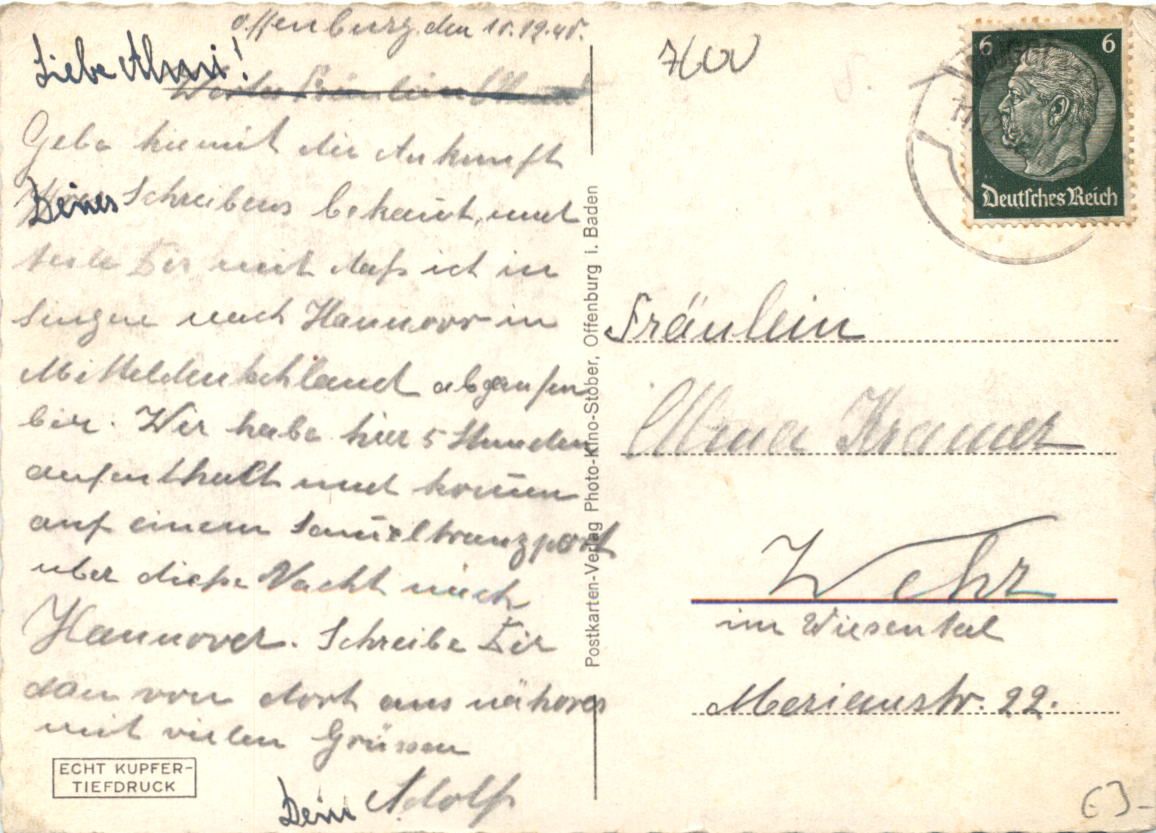 Offenburg, den 10.12.40.
Liebe
Werte Fräulein
Gebe hiemit die Ankunft
Deines Schreibens bekant, und
teile Dir mit daß ich in
Singen nach Hannover in
Mitteldeutschland abgerufen
bin. Wir habe hier 5 Stunden
aufenthalt und komen
auf einem Sameltranzport
über diese Nacht nach
Hannover. Schreibe Dir
dan von dort aus näheres
mit vielen Grüssen
Dein Adolf
ECHT KUPFER-
TIEFDRUCK
Postkarten-Verlag Photo-Kino-Stober, Offenburg i. Baden
6 6
Deutsches Reich
Fräulein
Kramer
Wehr
im Wiesental
Merianstr. 22.
63-